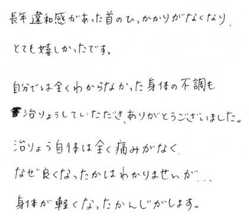 長年違和感があった首のひっかかりがなくなり、
とても嬉しかったです。
自分では全くわからなかった身体の不調も
治りょうしていただき、ありがとうございました。
治りょう自体は全く痛みがなく、
なぜ良くなったかはわかりませんが…
身体が軽くなったかんじがします。